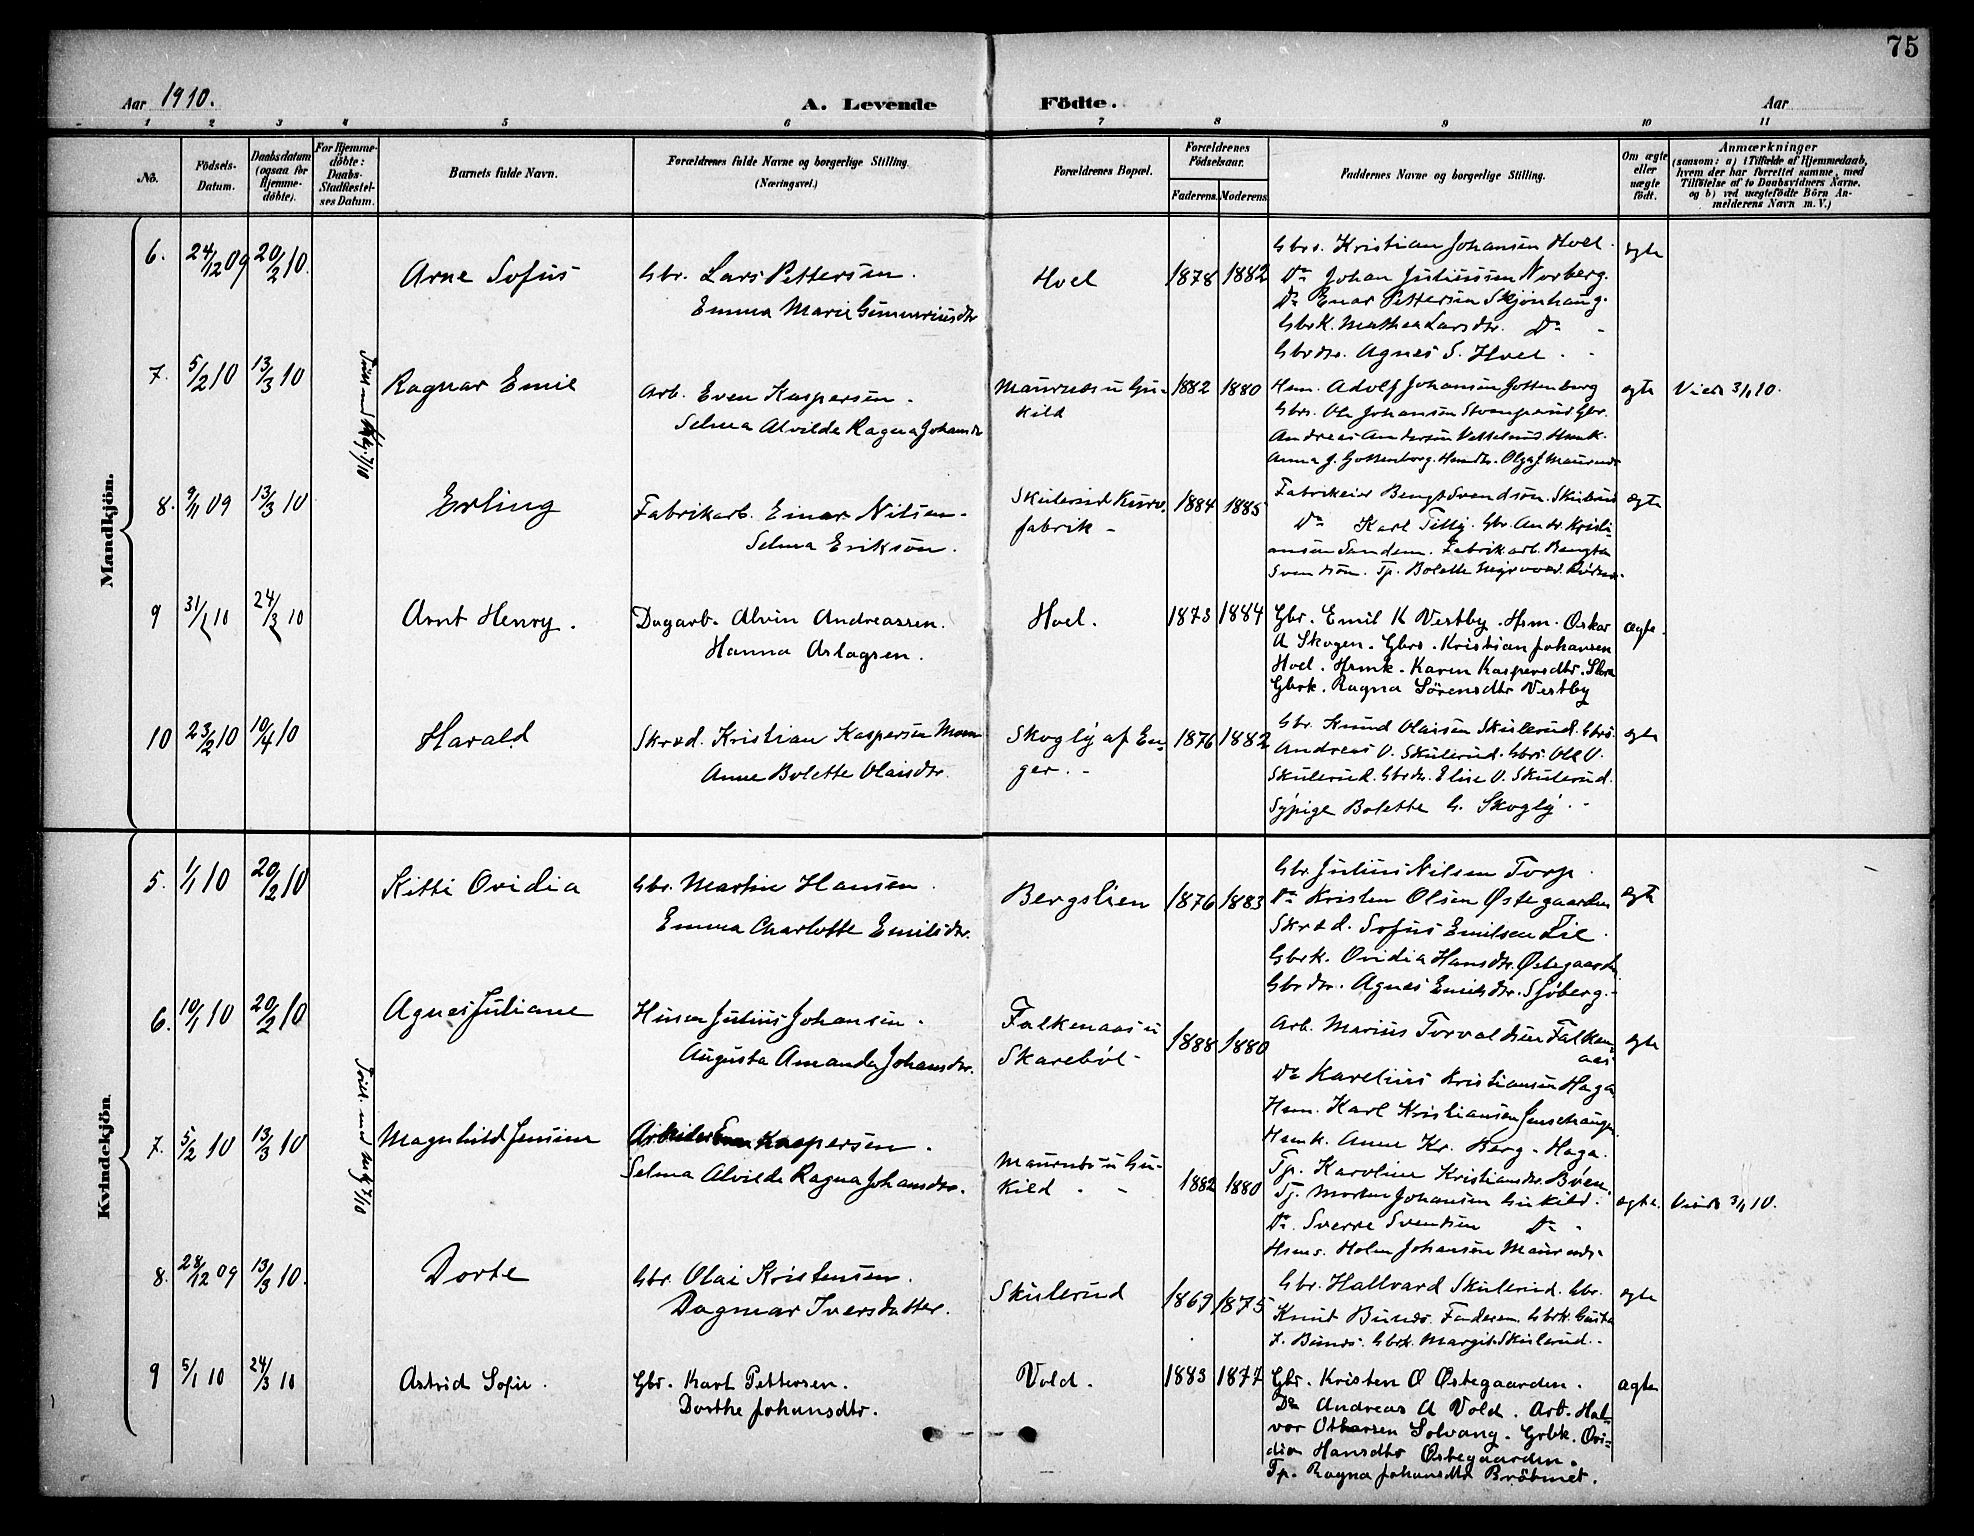 75
Aar 1910.
A. Levende Födte.
Aar
1 2 3 4 5 6 7 8 9 10 11
No.
Födsels-Datum.
Daabsdatum (ogsaa for Hjemme-døbte).
For Hjemme-døbte: Daabs-Stadfæstel-ses Datum.
Barnets fulde Navn.
Forældrenes fulde Navne og borgerlige Stilling. (Næringsvei.)
Forældrenes Bopæl.
Forældrenes Födselsaar.
Faderens. Moderens.
Faddernes Navne og borgerlige Stilling.
Om ægte eller uægte födt.
Anmærkninger
(saasom: a) i Tilfælde af Hjemmedaab, hvem der har forrettet samme, med Tilföielse af to Daabsvidners Navne. og b) ved uægtefödte Börn An-melderens Navn m. V.)
Mandkjön.
6. 24/12 09 20/2 10. Arne Sofus
Gbr. Lars Pettersen.
Emma Marie Gunneriusdtr
Hoel 1878 1882
Gbrs. Kristian Johansen Hoel.
Do Johan Juliussen Norberg.
Do Enar Pettersen Skjønhaug.
GbrK. Mathea Larsdtr. Do
Gbrdtr. Agnes S. Hoel.
ægte
7. 5/2 10 13/3 10 Ragnar Emil
Arb. Even Kaspersen.
Selma Alvilde Ragna Johansdtr
Maurud u Gu-
kild
1882 1880
Hsm. Adolf Johansen Gottenborg
Gbrs. Ole Johansen Gbr.
Andreas Andersen Hsmk.
Anna J. Gottenborg. Hsmdtr. Olga J. Maurud
ægte
Viede 3/1 10.
8. 9/11 09 13/3 10 Erling
Fabrikarb. Einar Nilsen.
Selma Erikson.
Skulerud
fabrik
1884 1885
Fabrikeier Bengt Svendsön. Skulerud
Do Karl Gbr. Andr. Kristi-
ansen Sandem. Fabrikarb. Bengta
Svendsön. Tp. Bolette
ægte
9 31/1 10 24/3 10 Arnt Henry.
Dagarb. Alvin Andreassen.
Hanna Aslagsen.
Hoel. 1873 1884
Gbr. Emil K Vestby. Hsm. Oskar
A Skogen. Gbrs. Kristian Johansen
Hoel. Hsmk. Karen Kaspersdtr.
Gbrk. Ragna Sörensdtr Vestby
ægte.
10 23/2 10 10/4 10 Harald
Skræd. Kristian Kaspersen
Anne Bolette Olaisdtr.
Skogly af En-
ger.
1876 1882
Gbr. Knud Olaisen Skulerud. Gbrs.
Andreas O. Skulerud. Gbrs. Ole O.
Skulerud. Gbrdtr. Elise O. Skulerud.
Sypige Bolette G. Skogly.
ægte
Kvindekjön.
5. 1/1 10 20/2 10 Kitti Ovidia
Gbr. Martin Hansen.
Emma Charlotte Emilsdtr.
Bergslien 1876 1883
Gbr Julius Nilsen Torp.
Do Kristen Olsen Østegaarden
Skræd. Sofus Emilsen Lie.
Gbrk. Ovidia Hansdtr. Østegaarden
Gbrdtr. Agnes Emilsdtr. Sjøberg.
ægte
6. 10/1 10 20/2 10 Agnes Juliane
Julius Johansen.
Augusta Amanda Johansdtr.
Falkenaas u
Skarebøl
1888 1880
Arb. Marius Torvaldsen Falken-
aas
Do Karelius Kristiansen Haga
Hsm. Karl Kristiansen
Hsmk. Anne Kr. Berg. Haga.
Tp. Karoline Kristiansdtr. Bøen.
ægte
7. 5/2 10 13/3 10 Magnhild Jensine
Arbeider Even Kaspersen.
Selma Alvilde Ragna Johansdtr.
Maurud u Gu-
kild.
1882 1880
Tj. Morten Johansen Gukild.
Do. Sverre Svendsen Do
Hsms. Holm Johansen Maurud.
ægte.
Viede 3/1 10.
8. 28/12 09 13/3 10. Dorte
Gbr. Olai Kristensen.
Dagmar Iversdatter.
Skulerud 1869 1875
Gbr. Hallvard Skulerud. Gbr.
Knut Bunes. Faderen. Gbrk. Gusta
I. Bunes. Gbrk. Margit Skulerud.
ægte
9 5/1 10 24/3 10 Astrid Sofie.
Gbr. Karl Pettersen.
Dorthe Johansdtr.
Vold. 1883 1877
Gbr. Kristen O Østegaarden.
Do Andreas A Vold. Arb. Hal-
vor Othersen Solvang. Grbk. Ovi-
dia Hansdtr Østegaarden.
Tp. Ragna Johansdtr Bråtmet.
ægte